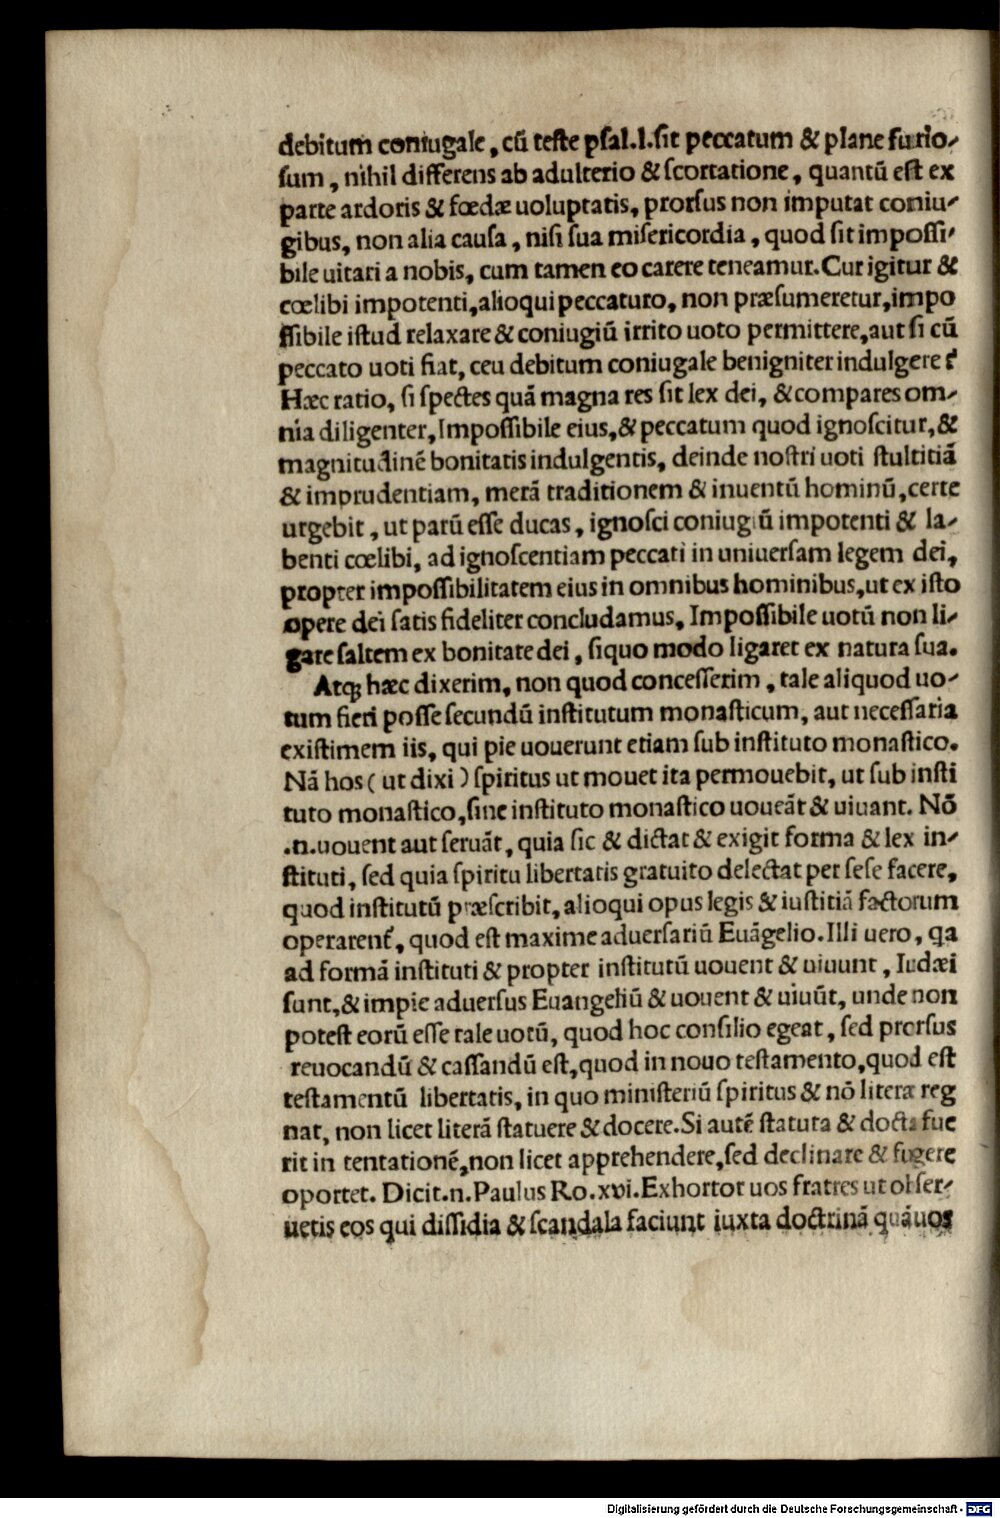 debitum coniugale, cū teste psal.l.sit peccatum & plane furio-
sum, nihil differens ab adulterio & scortatione, quantū est ex
parte ardoris & fœdæ uoluptatis, prorsus non imputat coniu-
gibus, non alia causa, nisi sua misericordia, quod sit impossi-
bile uitari a nobis, cum tamen eo carere teneamur. Cur igitur &
cœlibi impotenti, alioqui peccaturo, non præsumeretur, impo
ssibile istud relaxare & coniugiū irrito uoto permittere, aut si cū
peccato uoti fiat, ceu debitum coniugale benigniter indulgere?
Hæc ratio, si spectes quā magna res sit lex dei, & compares om-
nia diligenter, Impossibile eius, & peccatum quod ignoscitur, &
magnitudinē bonitatis indulgentis, deinde nostri uoti stultitiā
& imprudentiam, merā traditionem & inuentū hominū, certe
urgebit, ut parū esse ducas, ignosci coniugiū impotenti & la-
benti cœlibi, ad ignoscentiam peccati in uniuersam legem dei,
propter impossibilitatem eius in omnibus hominibus, ut ex isto
opere dei satis fideliter concludamus, Impossibile uotū non li-
gare saltem ex bonitate dei, siquo modo ligaret ex natura sua.
Atq; hæc dixerim, non quod concesserim, tale aliquod uo-
tum fieri posse secundū institutum monasticum, aut necessaria
existimem iis, qui pie uouerunt etiam sub instituto monastico.
Nā hos ( ut dixi ) spiritus ut mouet ita permouebit, ut sub insti
tuto monastico, sine instituto monastico uoueāt & uiuant. Nō
.n.uouent aut seruāt, quia sic & dictat & exigit forma & lex in-
stituti, sed quia spiritu libertatis gratuito delectat per sese facere,
quod institutū præscribit, alioqui opus legis & iustitiā factorum
operarent᷑, quod est maxime aduersariū Euāgelio. Illi uero, qa
ad formā instituti & propter institutū uouent & uiuunt, Iudæi
sunt, & impie aduersus Euangeliū & uouent & uiuūt, unde non
potest eorū esse tale uotū, quod hoc consilio egeat, sed prorsus
reuocandū & cassandū est, quod in nouo testamento, quod est
testamentū libertatis, in quo ministeriū spiritus & nō literæ reg
nat, non licet literā statuere & docere. Si autē statuta & docta fue
rit in tentationē, non licet apprehendere, sed declinare & fugere
oportet. Dicit.n. Paulus Ro.xvi. Exhortor uos fratres ut obser-
uetis eos qui dissidia & scandala faciunt iuxta doctrinā quā uos
Digitalisierung gefördert durch die Deutsche Forschungsgemeinschaft - DFG